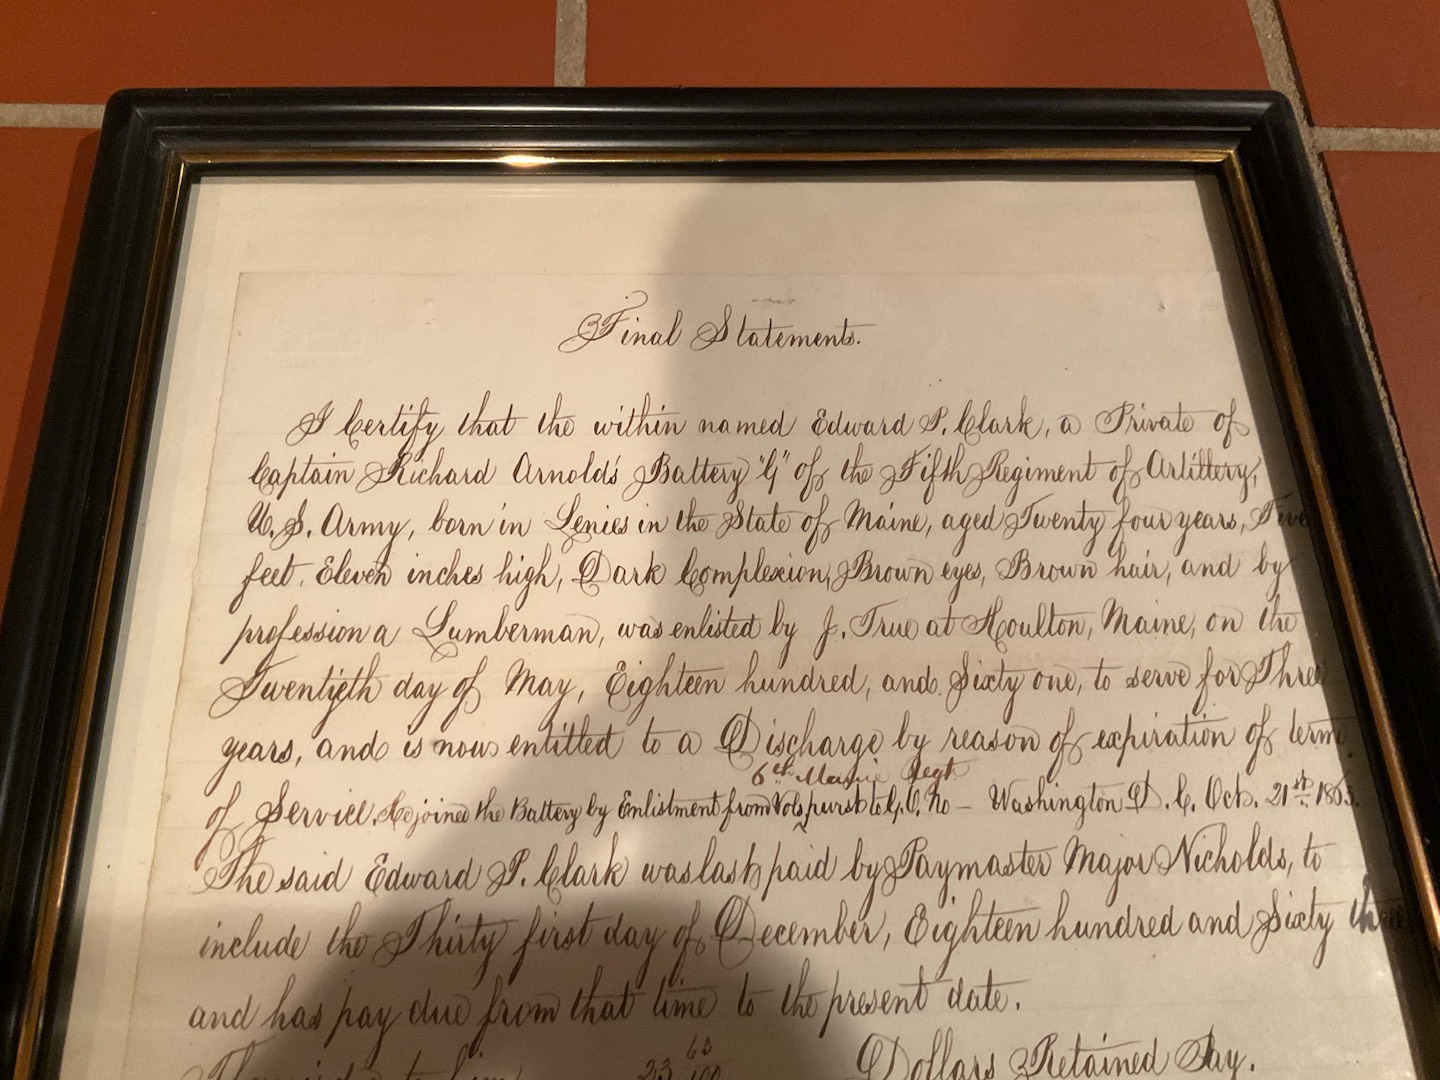 Final Statements.
I Certify that the within named Edward P. Clark, a Private of
Captain Richard Arnold's Battery "G" of the Fifth Regiment of Artillery,
U. S. Army, born in in the State of Maine, aged Twenty four years, Five
feet, Eleven inches high, Dark Complexion, Brown eyes, Brown hair, and by
profession a Lumberman, was enlisted by J. True at Houlton, Maine, on the
Twentieth day of May, Eighteen hundred, and Sixty one, to serve for Three
years, and is now entitled to a Discharge by reason of expiration of term
6th Maine Regt.
of Service. He joined the Battery by Enlistment from Vols purst to G. O. No — Washington D. C. Oct. 21st 1863.
The said Edward P. Clark was last paid by Paymaster Major Nicholds, to
include the Thirty first day of December, Eighteen hundred and Sixty three
and has pay due from that time to the present date.
23 63/100 Dollars Retained Pay.